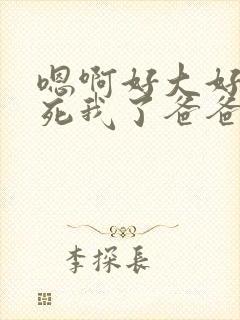 嗯啊好大好
死我了爸爸
李探长